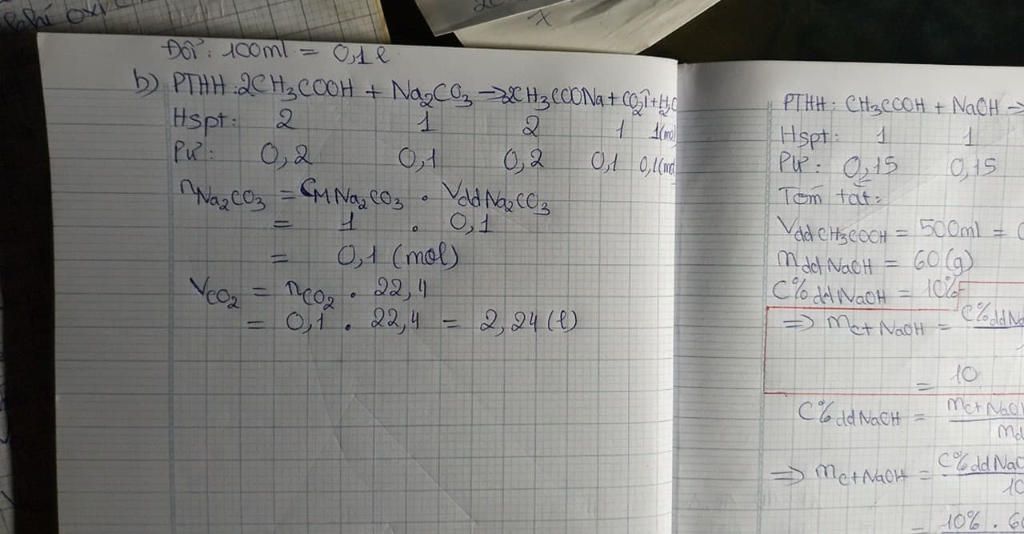 Đổi: 100ml = 0,1l
b) PTHH: 2CH₃COOH + Na₂CO₃ → 2CH₃COONa + CO₂↑ + H₂O
Hspt: 2 1 2 1 1(mol
Pứ: 0,2 0,1 0,2 0,1 0,1(mol
nNa₂CO₃ = CMNa₂CO₃ . VddNa₂CO₃
= 1 . 0,1
= 0,1 (mol)
VCO₂ = nCO₂ . 22,4
= 0,1 . 22,4 = 2,24 (l)
PTHH: CH₃COOH + NaOH →
Hspt: 1 1
Pứ: 0,15 0,15
Tóm tắt:
VddCH₃COOH = 500ml =
mddNaOH = 60(g)
C%ddNaOH = 10%
=> mct NaOH = C%ddNa
= 10
C%ddNaOH = mct NaOH
md
=> mct NaOH = C%ddNaO
10
= 10% . 60